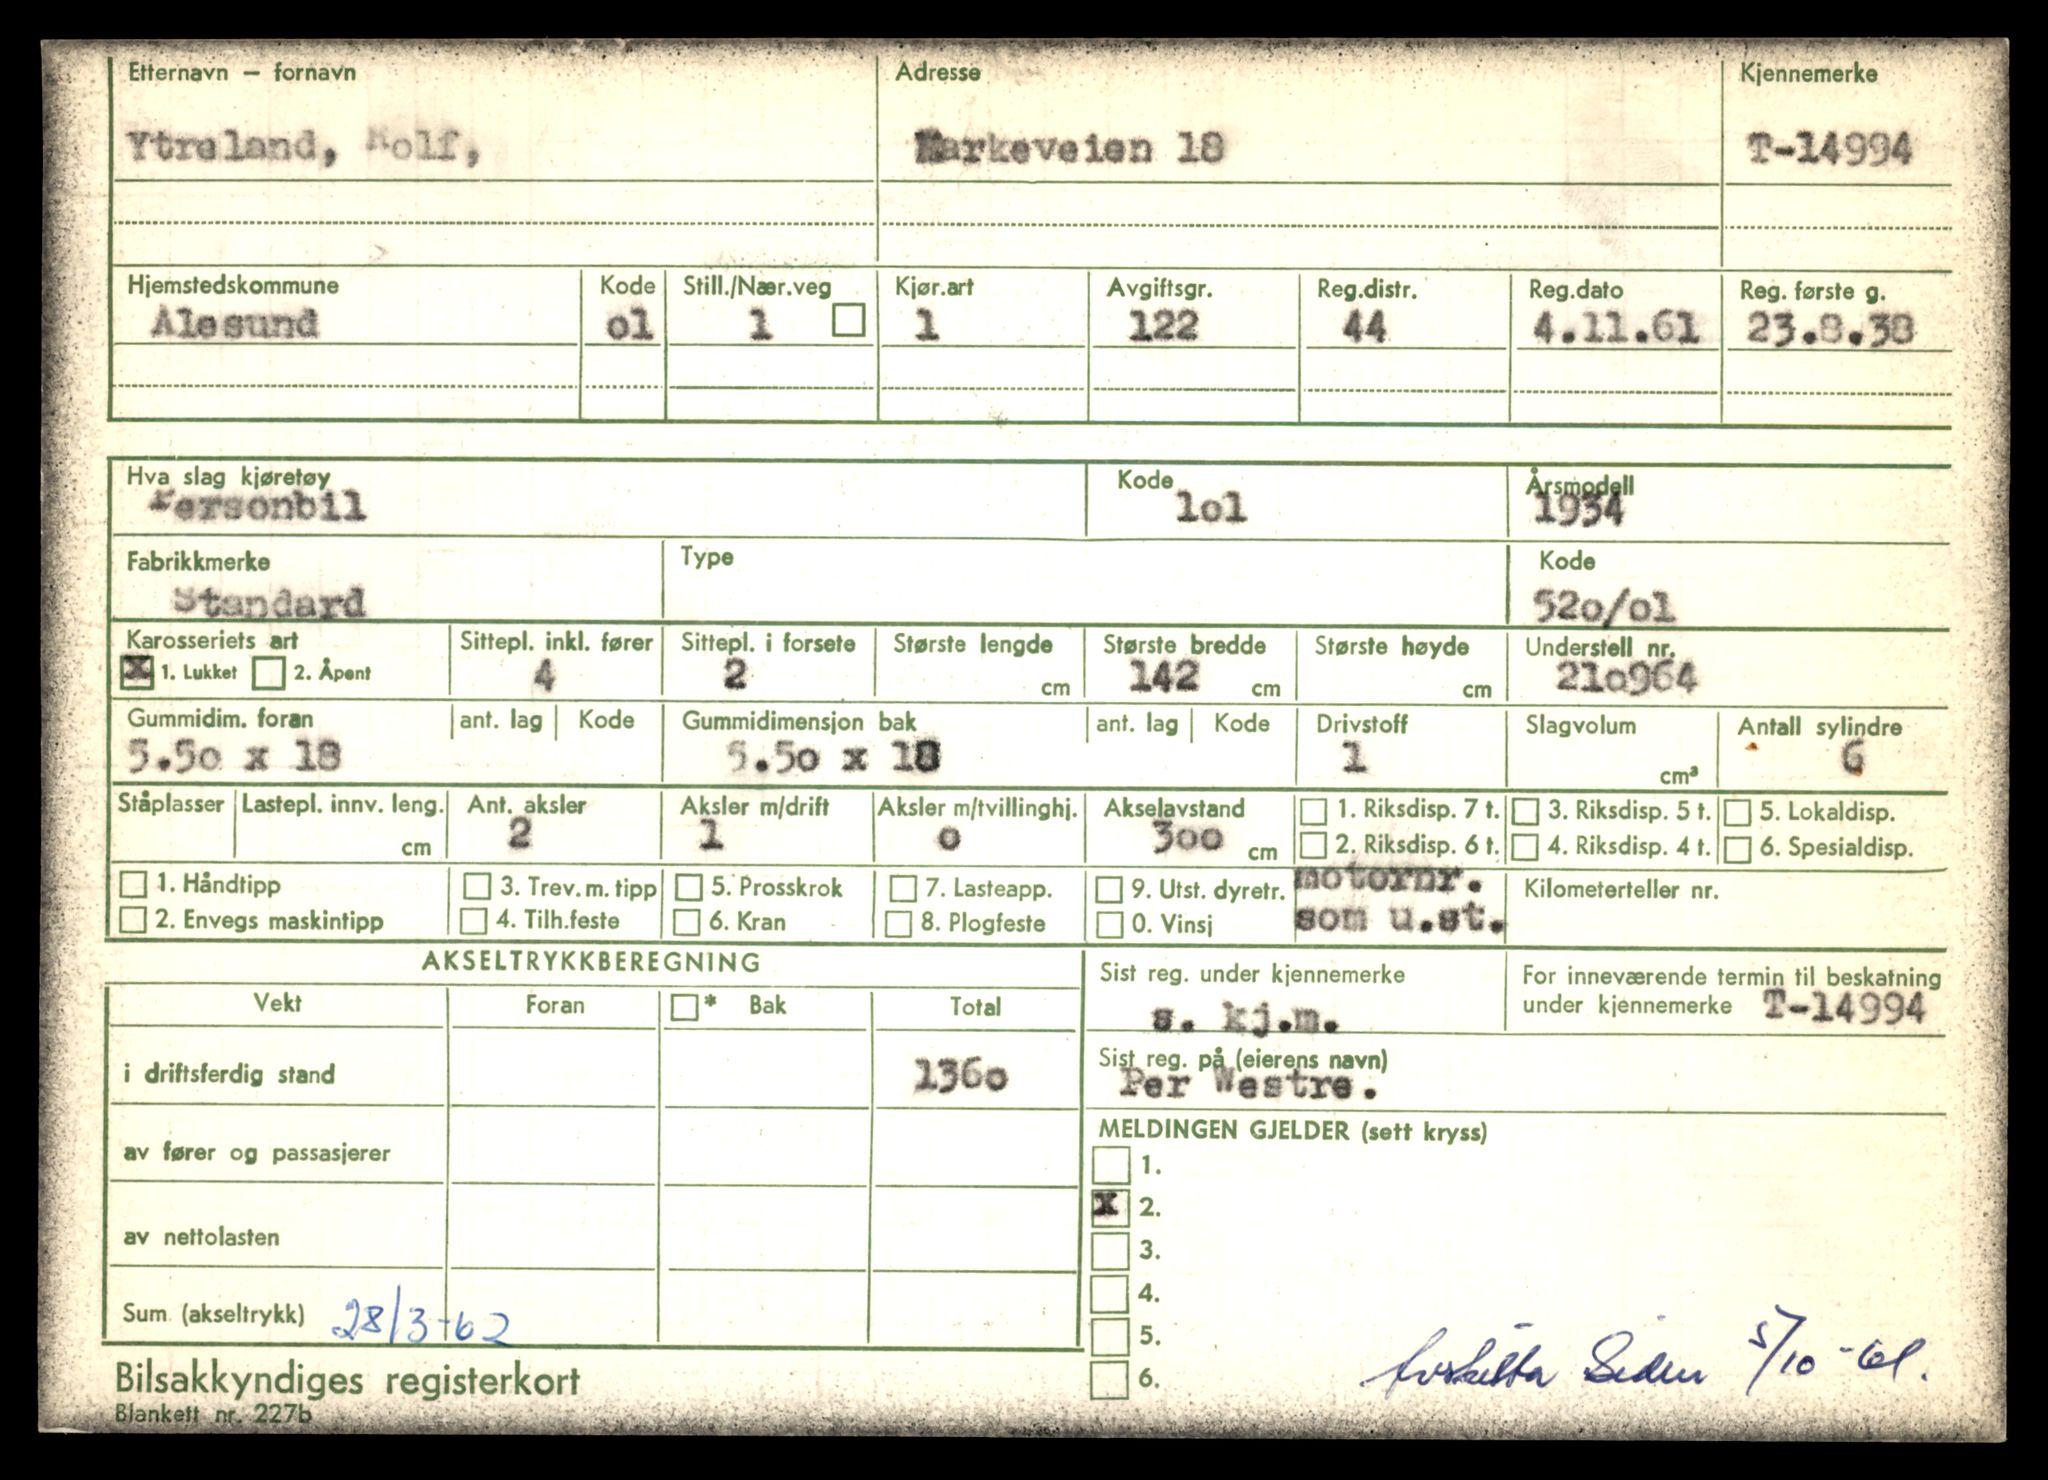 Etternavn – fornavn Adresse Kjennemerke
Ytreland, Rolf, Markeveien 18 T-14994
Hjemstedskommune Kode Still./Nær.veg Kjør.art Avgiftsgr. Reg.distr. Reg.dato Reg. første g.
Alesund o1 1 1 122 44 4.11.61 23.8.38
Hva slag kjøretøy Kode Årsmodell
Personbil 1o1 1934
Fabrikkmerke Type Kode
Standard 52o/o1
Karosseriets art Sittepl. inkl. fører Sittepl. i forsete Største lengde Største bredde Største høyde Understell nr.
X 1. Lukket 2. Åpent 4 2 cm 142 cm cm 21o964
Gummidim. foran ant. lag Kode Gummidimensjon bak ant. lag Kode Drivstoff Slagvolum Antall sylindre
5.5o x 18 5.5o x 18 1 cm³ 6
Ståplasser Lastepl. innv. leng. Ant. aksler Aksler m/drift Aksler m/tvillinghj. Akselavstand 1. Riksdisp. 7 t. 3. Riksdisp. 5 t. 5. Lokaldisp.
cm 2 1 o 3oo cm 2. Riksdisp. 6 t. 4. Riksdisp. 4 t. 6. Spesialdisp.
1. Håndtipp 3. Trev. m. tipp 5. Prosskrok 7. Lasteapp. 9. Utst. dyretr. motornr. Kilometerteller nr.
2. Envegs maskintipp 4. Tilh.feste 6. Kran 8. Plogfeste 0. Vinsj som u.st.
AKSELTRYKKBEREGNING Sist reg. under kjennemerke For inneværende termin til beskatning
Vekt Foran * Bak Total s. kj.m. under kjennemerke T-14994
i driftsferdig stand 136o Sist reg. på (eierens navn)
Per Westre.
av fører og passasjerer MELDINGEN GJELDER (sett kryss)
1.
X 2.
av nettolasten 3.
4.
Sum (akseltrykk) 28/3-62 5.
Bilsakkyndiges registerkort 6. Siden 5/10-61.
Blankett nr. 227b